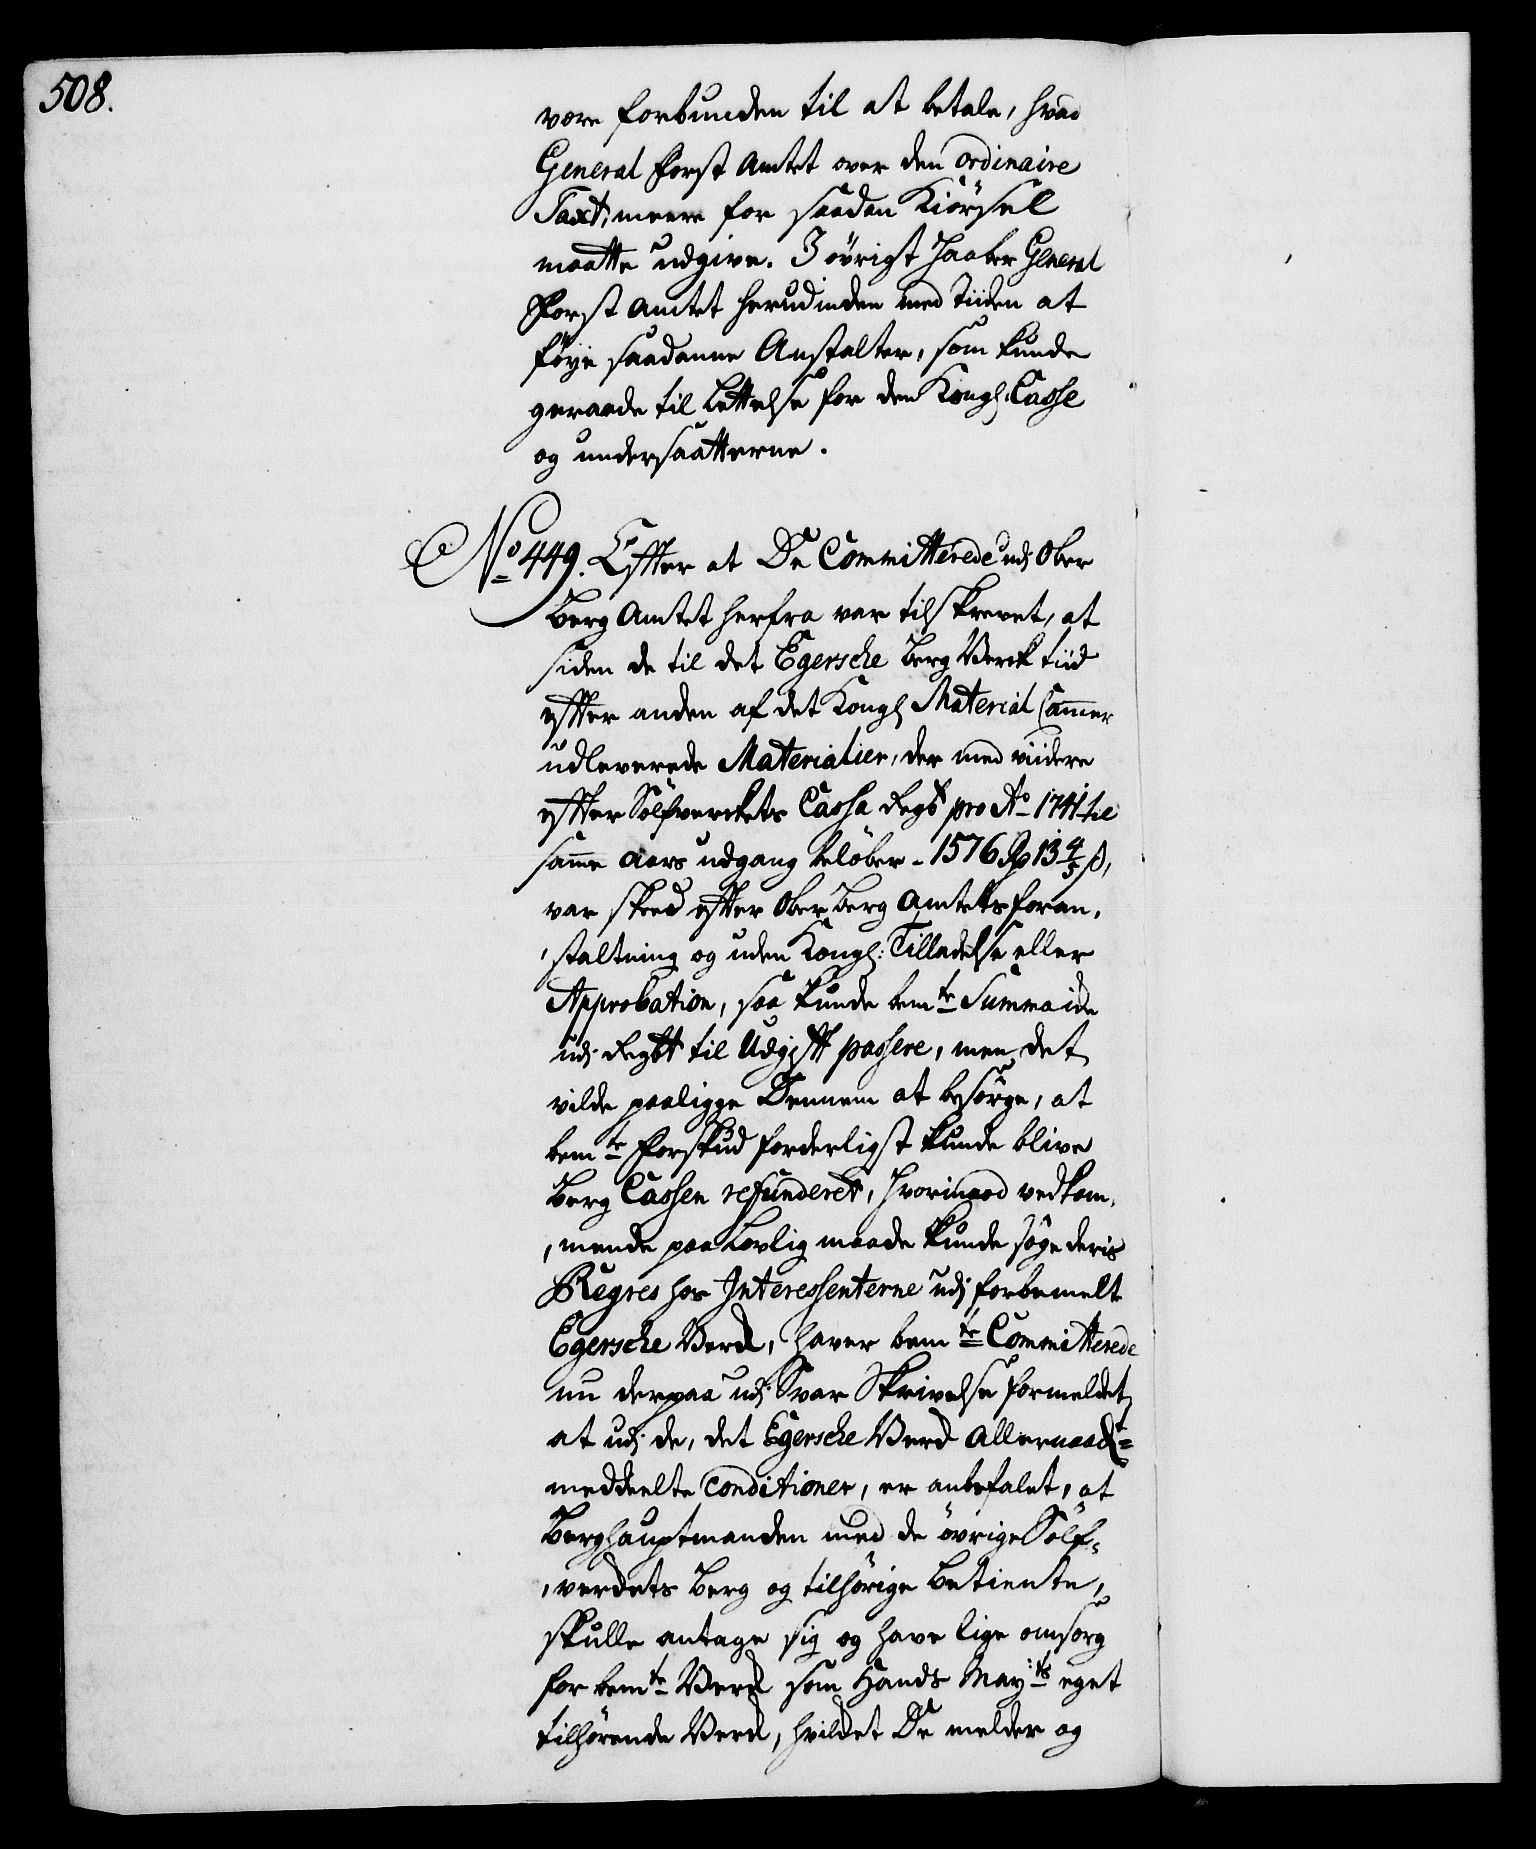 508.
være forbunden til at betale, hvad
General Forst Amtet over den ordinaire
Taxt, meere for saadan Kiörsel
maatte udgive. I övrigt haaber General
Forst Amtet herudinden med Tiiden at
föye saadanne Anstalter, som kunde
geraade til Lettelse for den Kongl. Casse
og undersaatterne.
No 449. Efter at De Committerede udj Ober
Berg Amtet herfra var tilskrevet, at
siden de til det Egersche Berg Verck tiid
efter anden af det Kongl Material Camer
udleverede Materialier, der med viidere
efter Sölfverckets Cassa Regsk pro Ao 1741 til
same aars udgang belöber - 1576 Rd 13 4/5 s,
var skeed efter Ober Berg Amtets foran,
,staltning og uden Kongl: Tilladelse eller
Approbation, saa kunde bemte Summa icke
udj Regsk til Udgift passere, men det
vilde paaligge Dennem at besörge, at
bemte Forskud forderligst kunde blive
Berg Cassen refunderet, hvorimod vedkom,
,mende paa Lovlig maade kunde söge deris
Regres hos Interessenterne udj forbemelte
Egersche Verck, haver bemte Committerede
nu derpaa udj Svar Skrivelse formeldet
at udj de, det Egersche Verck Allernaadt=
meddeelte Conditioner, er anbefalet, at
Berghauptmanden med de övrige Sölf=
,verckets Berg og tilhörige Betiente,
skulle antage sig og have lige omsorg
for bemte Verck som Hands Mayts eget
tilhörende Verck, hvilcket De melder og